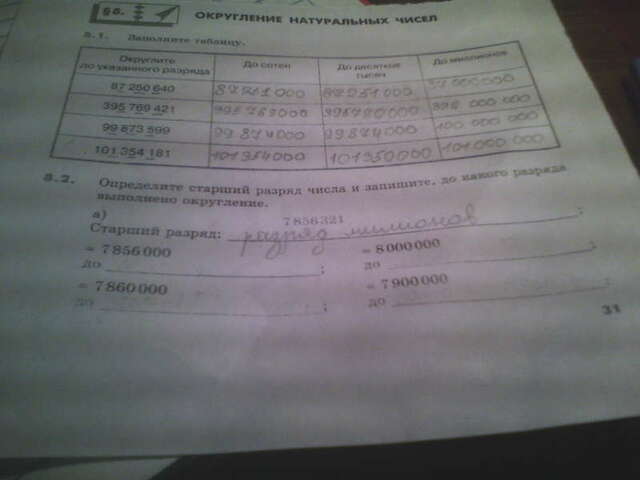 §5. ОКРУГЛЕНИЕ НАТУРАЛЬНЫХ ЧИСЕЛ
5.1. Заполните таблицу.
Округлите до указанного разряда До сотен До десятков тысяч До миллионов
87 250 640 87 251 000 87 251 000 000 000
395 769 421 395 769 000 000 000
99 873 599 99 874 000 99 874 000 100 000 000
101 354 181 101 354 000 101350 000 101 000 000
5.2. Определите старший разряд числа и запишите, до какого разряда
выполнено округление.
а) 7 856 321
Старший разряд: разряд милионов ;
≈ 7 856 000 ≈ 8 000 000
до ; до ;
≈ 7 860 000 ≈ 7 900 000
до ; до ;
31